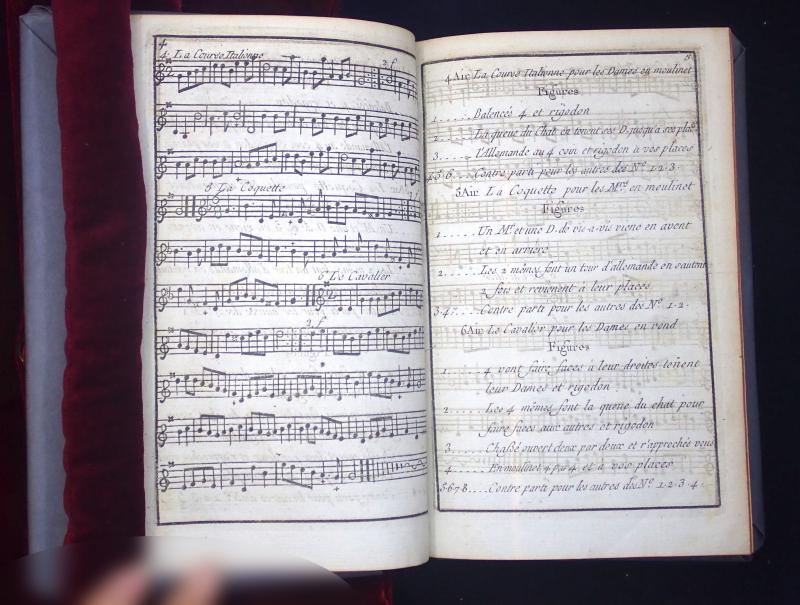 4
4. La Course Italienne
2. f
5 La Coquette
6 Le Cavalier
2. f
5
4 Air La Course Italienne pour les Dames en moulinet
Figures
1..... Balencés 4 et rigodon
2..... La queue du Chat en tenent ses D. jusqu'a ses plas
3..... L'Allemande au 4 coin et rigodon a vos places
4.5.6.. Contre parti pour les autres des Nº 1.2.3.
5 Air La Coquette pour les Mrs en moulinet
Figures
1..... Un Mr et une D. de vis-a-vis viene en avent
et en arriere
2..... Les 2 mémes font un tour d'allemande en sautent
2 fois et revienent à leur places
3.4.... Contre parti pour les autres des Nº 1.2.
6 Air Le Cavalier pour les Dames en rond
Figures
1..... 4 vont faire faces à leur droites tenent
leur Dames et rigodon
2..... Les 4 mêmes font la queue du chat pour
faire faces aux autres et rigodon
3..... Chaßé ouvert deux par deux et r'approchés vous
4..... En moulinet 4 par 4 et à vos places
5.6.7.8.... Contre parti pour les autres des Nº 1.2.3.4.